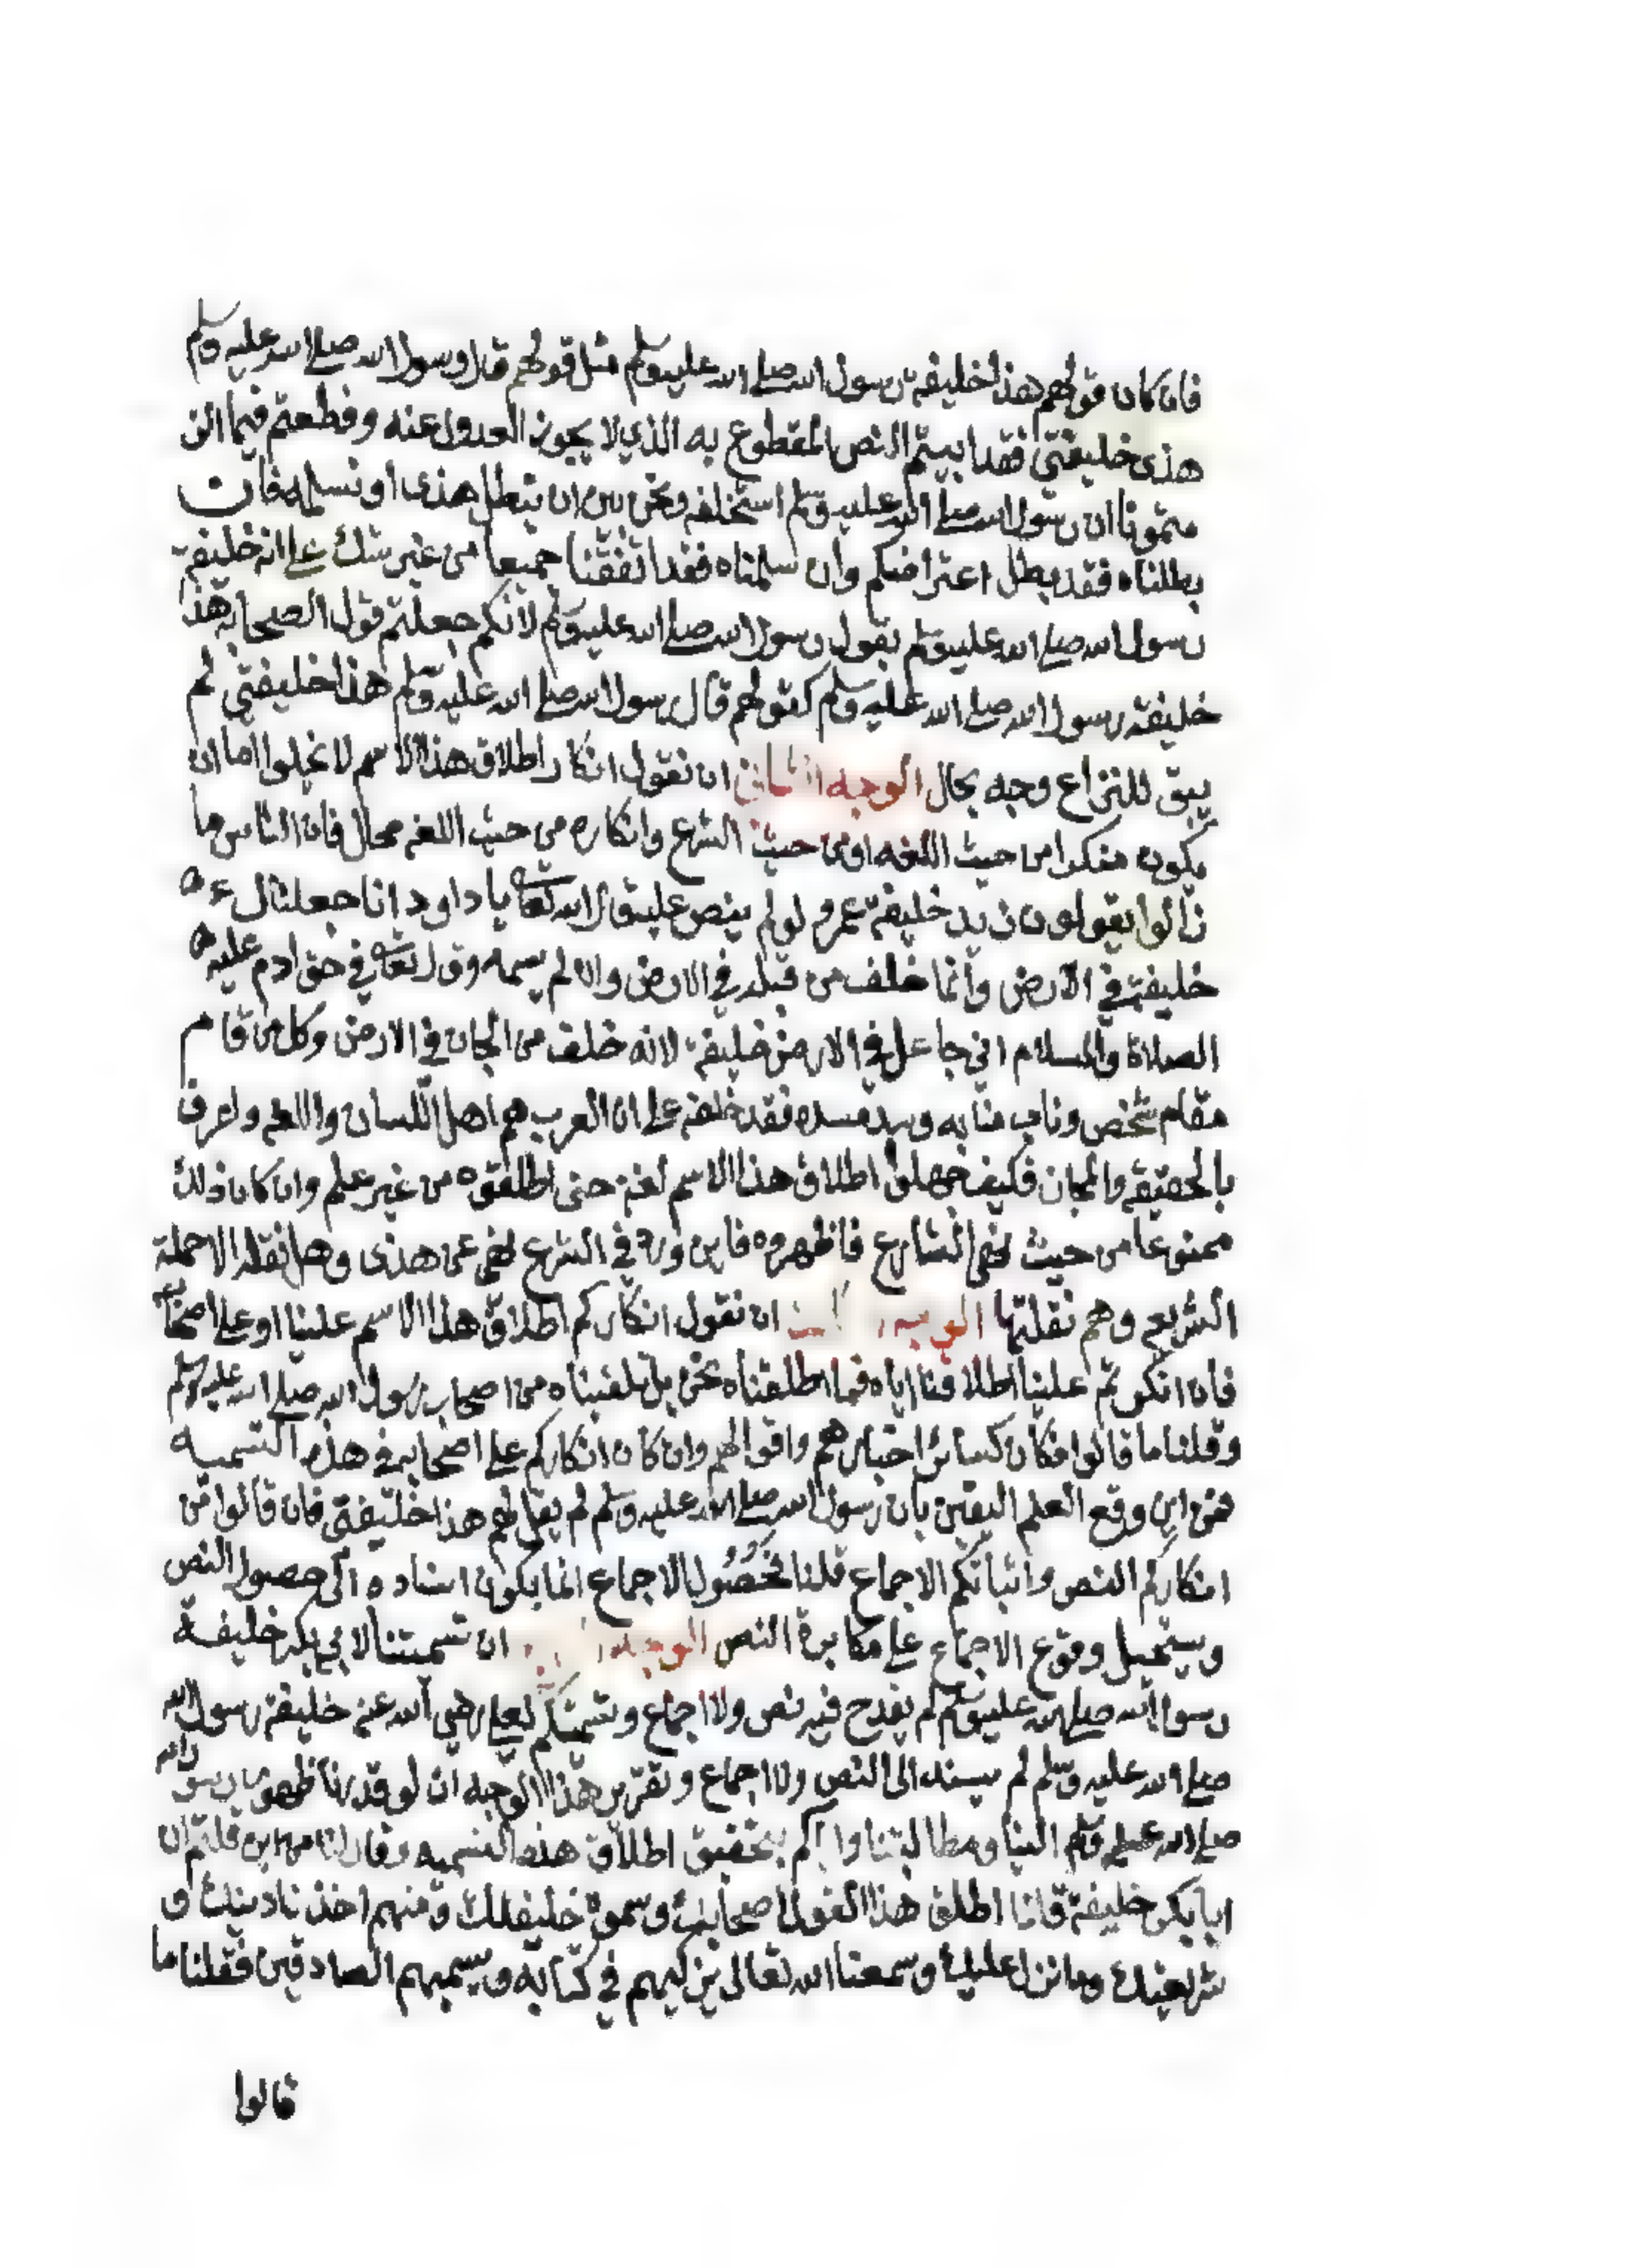 فان كان قولهم هذا خليفة رسول الله صلى الله عليه وسلم مثل قولهم قال رسول الله صلى الله عليه وسلم
هذى خليفتي فقد ابيتم النص المقطوع به الذي لا يجوز العدول عنه وقطعتم فيما الز
متمونا ان رسول الله صلى الله عليه وسلم استخلفه ونحن بين ان نبطل هذى او نسلمه فان
بطلناه فقد بطل اعتراضكم وان سلمناه فقد اتفقنا جميعا من غير شك على انه خليفة
رسول الله صلى الله عليه وسلم بقول رسول الله صلى الله عليه وسلم لانكم جعلتم قول الصحابة هذا
خليفة رسول الله صلى الله عليه وسلم كقولهم قال رسول الله صلى الله عليه وسلم هذا خليفتي لم
يبق للنزاع وجه بحال الوجه الثاني ان نقول انكار اطلاق هذا الاسم لا يخلوا اما ان
يكون منكرا من حيث اللغه او من حيث الشرع وانكاره من حيث اللغه محال فان الناس ما
زالوا يقولون زيد خليفة عمرو لو لم ينص عليه قال الله تعالى يا داود انا جعلناك
خليفة في الارض وانما خلف من قبله في الارض وان لم يسمه وقال تعالى في حق ادم عليه
الصلاة والسلام اني جاعل في الارض خليفة لانه خلف من الجان في الارض وكل من قام
مقام شخص وناب منابه وسد مسده فقد خلفه على ان العرب هم اهل اللسان واللغه واعرف
بالحقيقه والمجاز فكيف جهلوا اطلاق هذا الاسم لغة حتى اطلقوه من غير علم وان كان ذلك
ممنوعا من حيث نهى الشارع فاظهروه فاين ورد في الشرع نهي عن هذى وهل نقله الا حملة
الشرع وهم نقلتها الوجه ان نقول انكاركم اطلاق هذا الاسم علينا او على اصحابه
فان انكرتم علينا اطلاقنا اياه فما اطلقناه نحن بل تلقيناه من اصحاب رسول الله صلى الله عليه وسلم
وقلنا ما قالوا فكان كسائر اخبارهم واقوالهم وان كان انكاركم على اصحابه في هذه التسميه
فمن اين وقع العلم اليقين بان رسول الله صلى الله عليه وسلم لم يقل لهم هذا خليفتي فان قالوا من
انكاركم النص واثباتكم الاجماع قلنا فحصول الاجماع انما يكون اسناده الى حصول النص
ويستحيل وقوع الاجماع على مكابرة النص الوجه ان تسميتنا لابي بكر خليفة
رسول الله صلى الله عليه وسلم لم يقدح فيه نص ولا اجماع وتسميتكم لعلي رضي الله عنه خليفة رسول الله
صلى الله عليه وسلم لم يسند الى النص ولا اجماع وتقرير هذا الوجه ان لو قدرنا ظهور رسول الله
صلى الله عليه وسلم الينا ومطالبتنا واياكم بتحقيق اطلاق هذه التسميه وقال لنا من اين قلتم ان
ابا بكر خليفة قلنا اطلق هذا القول اصحابك وسموه خليفتك ومنهم اخذنا دينك و
شريعتك وما نزل عليك وسمعنا الله تعالى يزكيهم في كتابه ويسميهم الصادقين فقلنا ما
قالوا